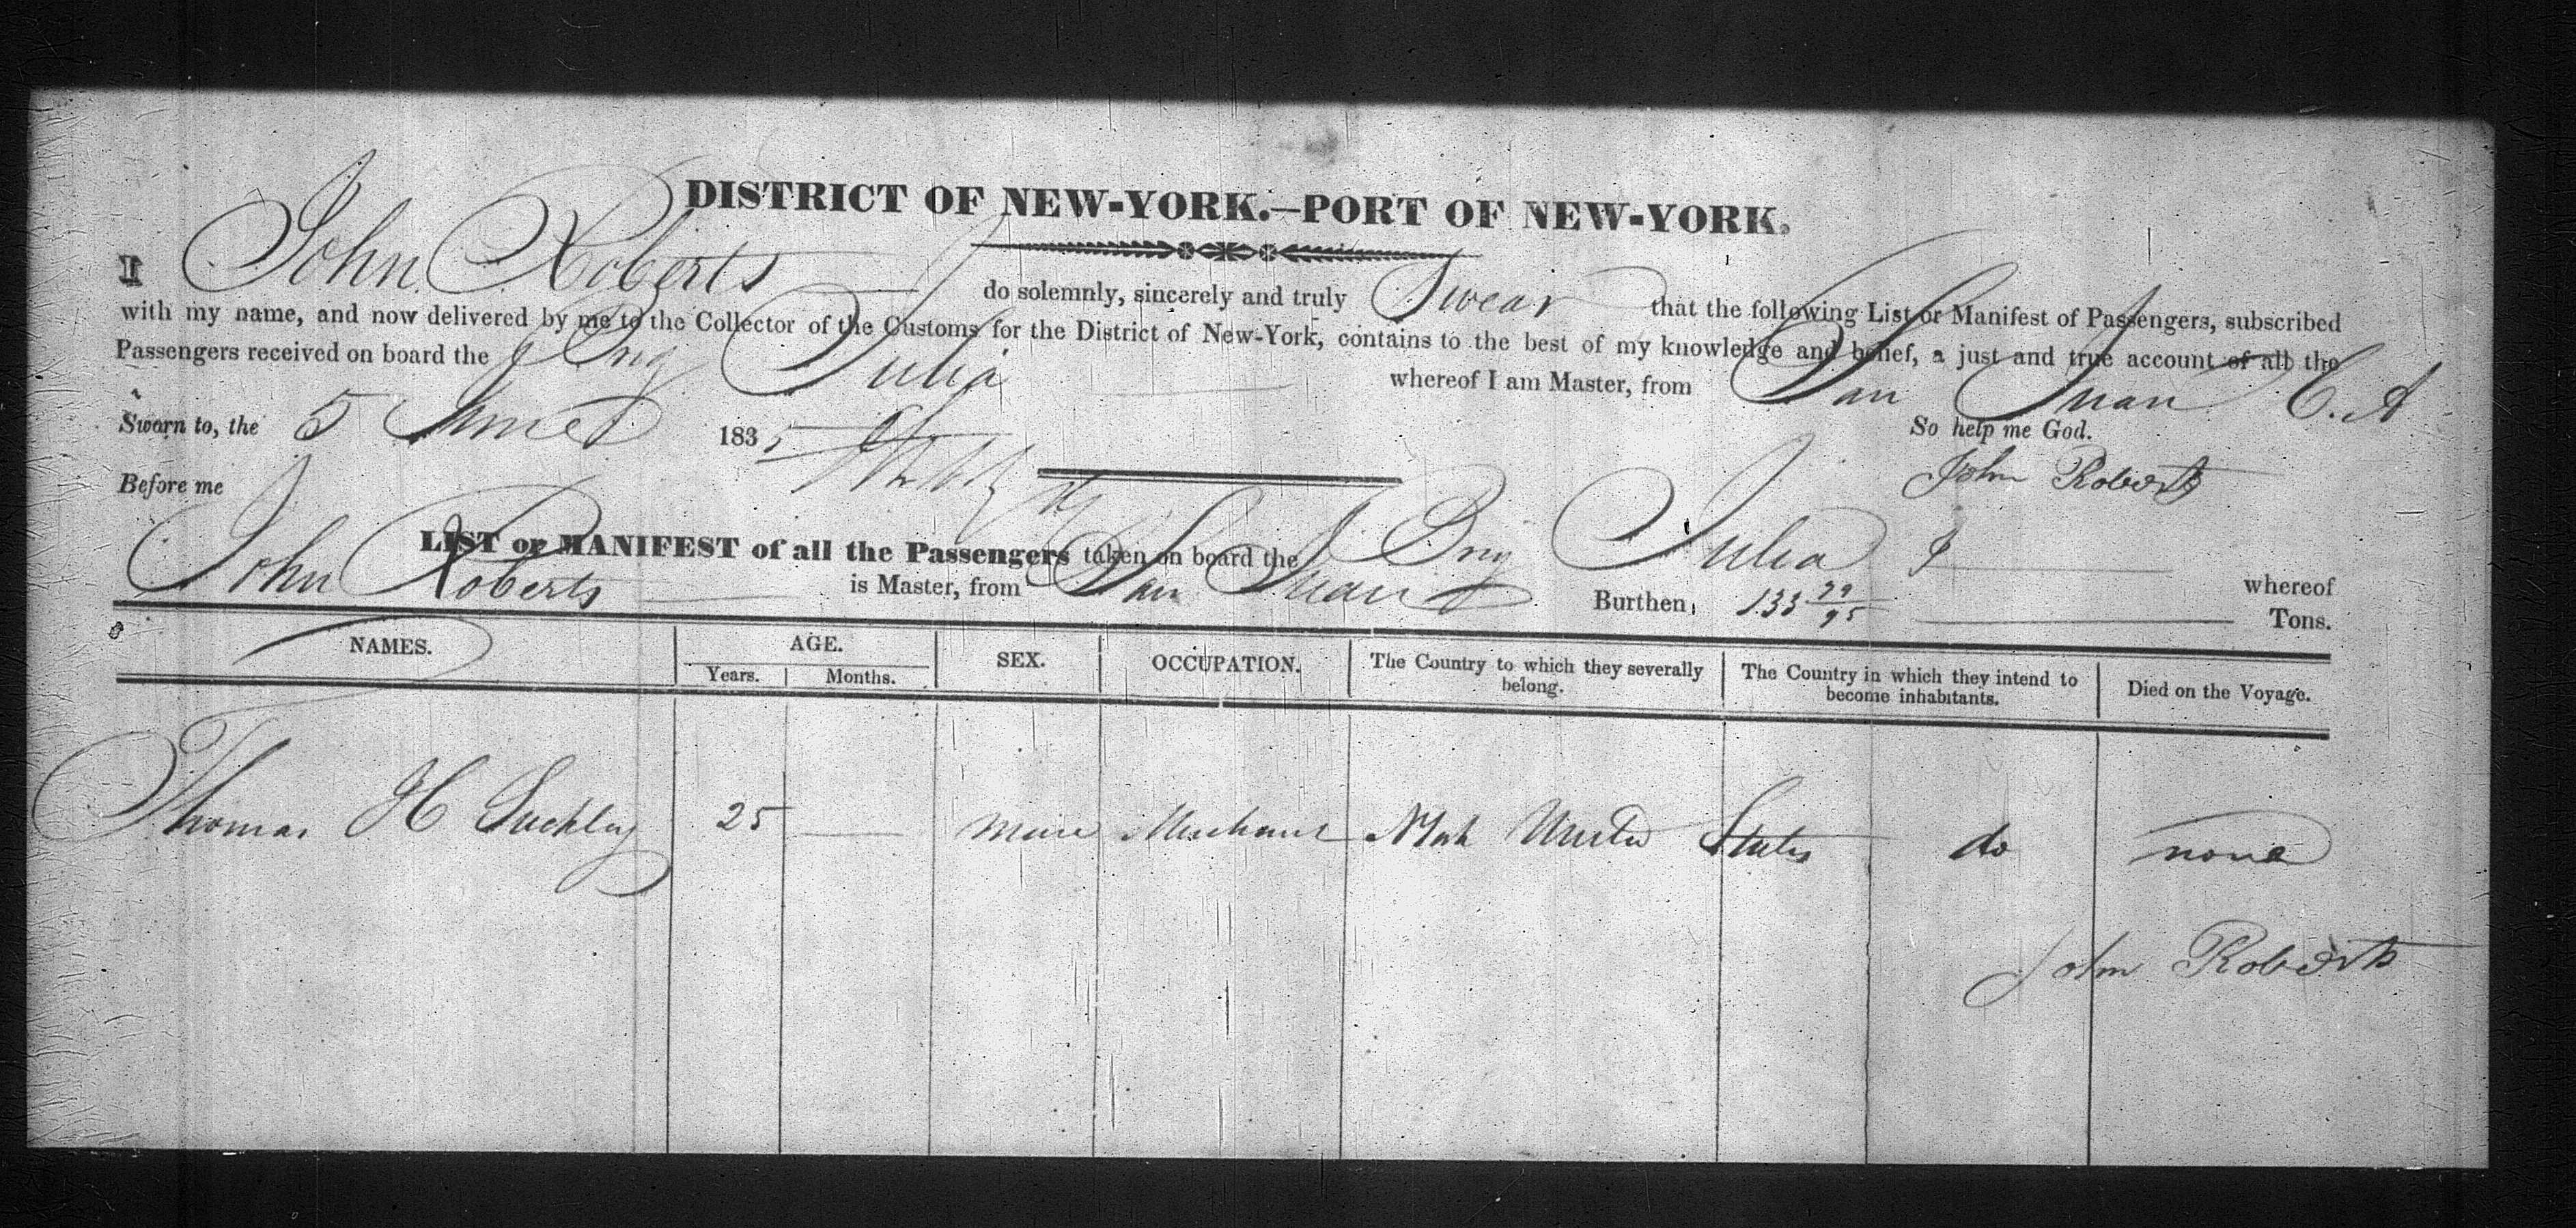 DISTRICT OF NEW-YORK.—PORT OF NEW-YORK.
I John Roberts do solemnly, sincerely and truly Swear that the following List or Manifest of Passengers, subscribed
with my name, and now delivered by me to the Collector of the Customs for the District of New-York, contains to the best of my knowledge and belief, a just and true account of all the
Passengers received on board the Brig Julia whereof I am Master, from San Juan C. A
Sworn to, the 5 June 1835 So help me God.
Before me John Roberts
LIST or MANIFEST of all the Passengers taken on board the Brig Julia whereof
John Roberts is Master, from San Juan Burthen, 133 79/95 Tons.
NAMES. AGE. SEX. OCCUPATION. The Country to which they severally belong. The Country in which they intend to become inhabitants. Died on the Voyage.
Years. Months.
Thomas H 25 — Merchant United States do none
John Roberts